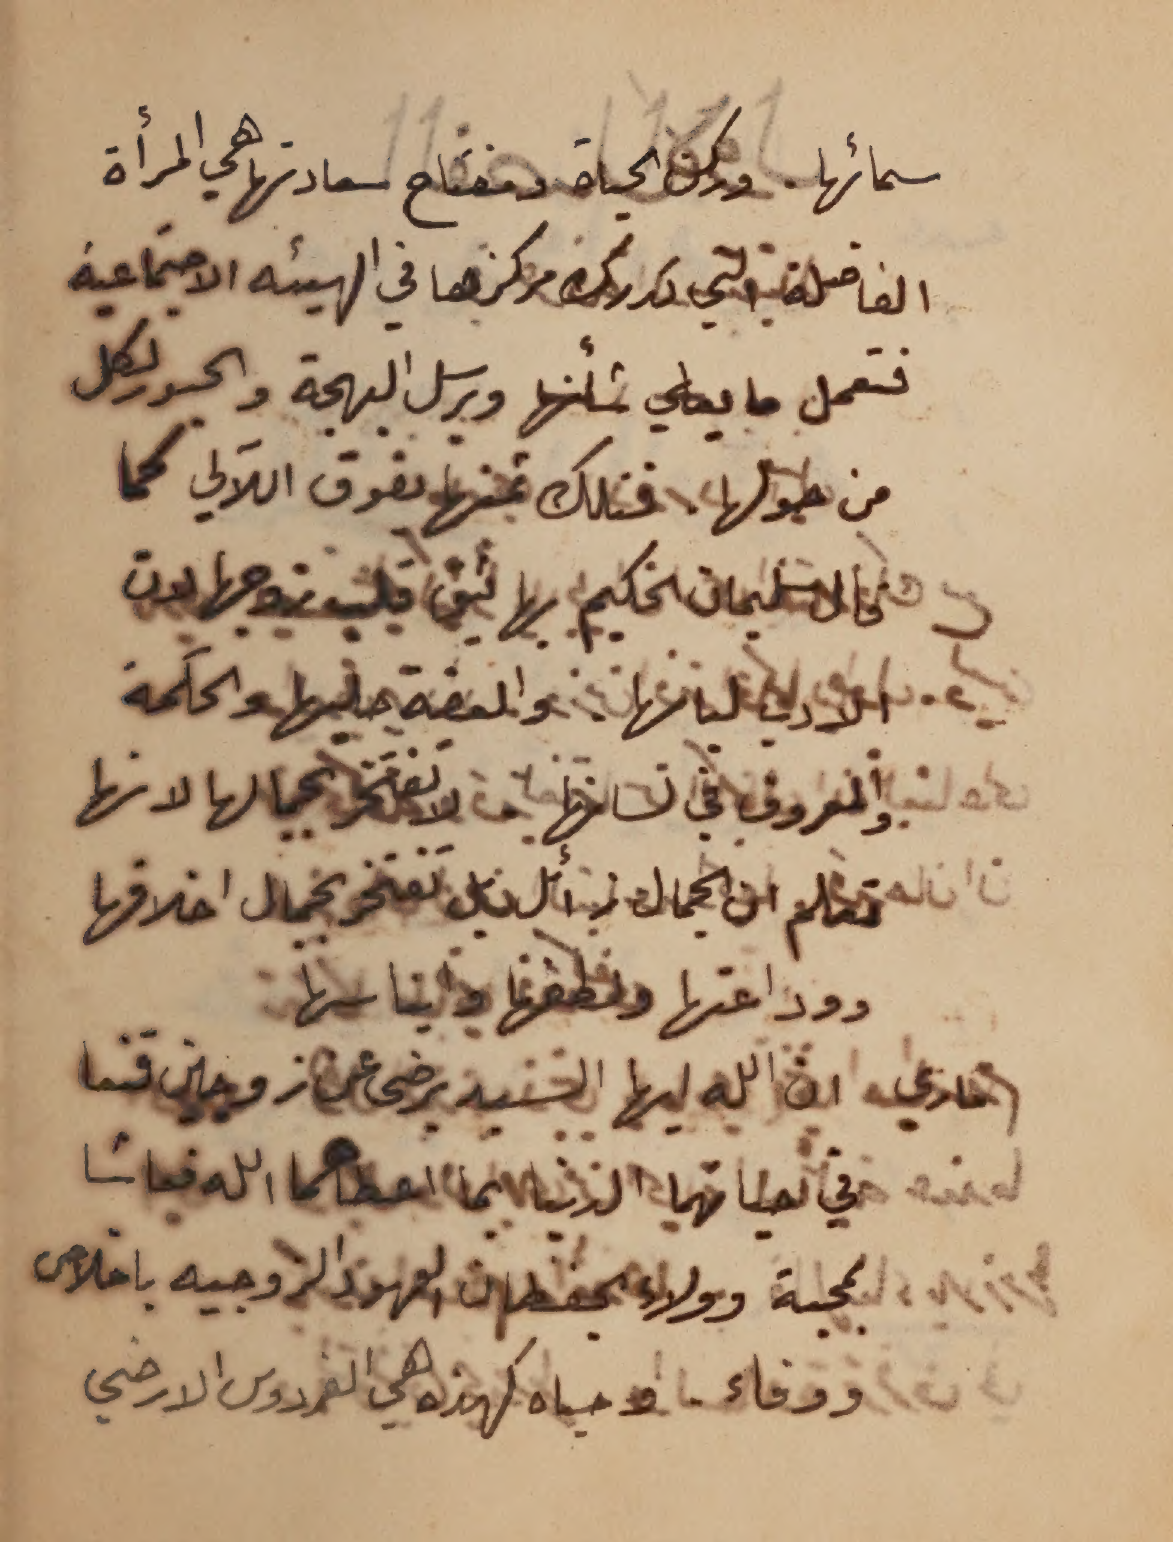 سمائها. وركن الحياة ومفتاح سعادتها هي المرأة
الفاضلة التي تدرك مركزها في الهيئه الاجتماعية
فتعمل ما يعلي شأنها ويرسل البهجة والحبور لكل
من حولها. فتلك ثمنها يفوق اللآلي كما
قال سليمان الحكيم بها يثق قلب زوجها
الادب لباسها. والعفة حليها والحكمة
والمعروف في لسانها لا تفتخر بجمالها لانها
تعلم ان الجمال زائل بل تفتخر بجمال اخلاقها
ووداعتها ولطفها وايناسها
ان الله ايها السيد يرضى عن زوجين قنعا
في حياتهما الدنيا بما اعطاهما الله فعاشا
بمحبة وولاء يحفظان العهود الزوجيه باخلاص
ووفاء. وحياه كهذه هي الفردوس الارضي